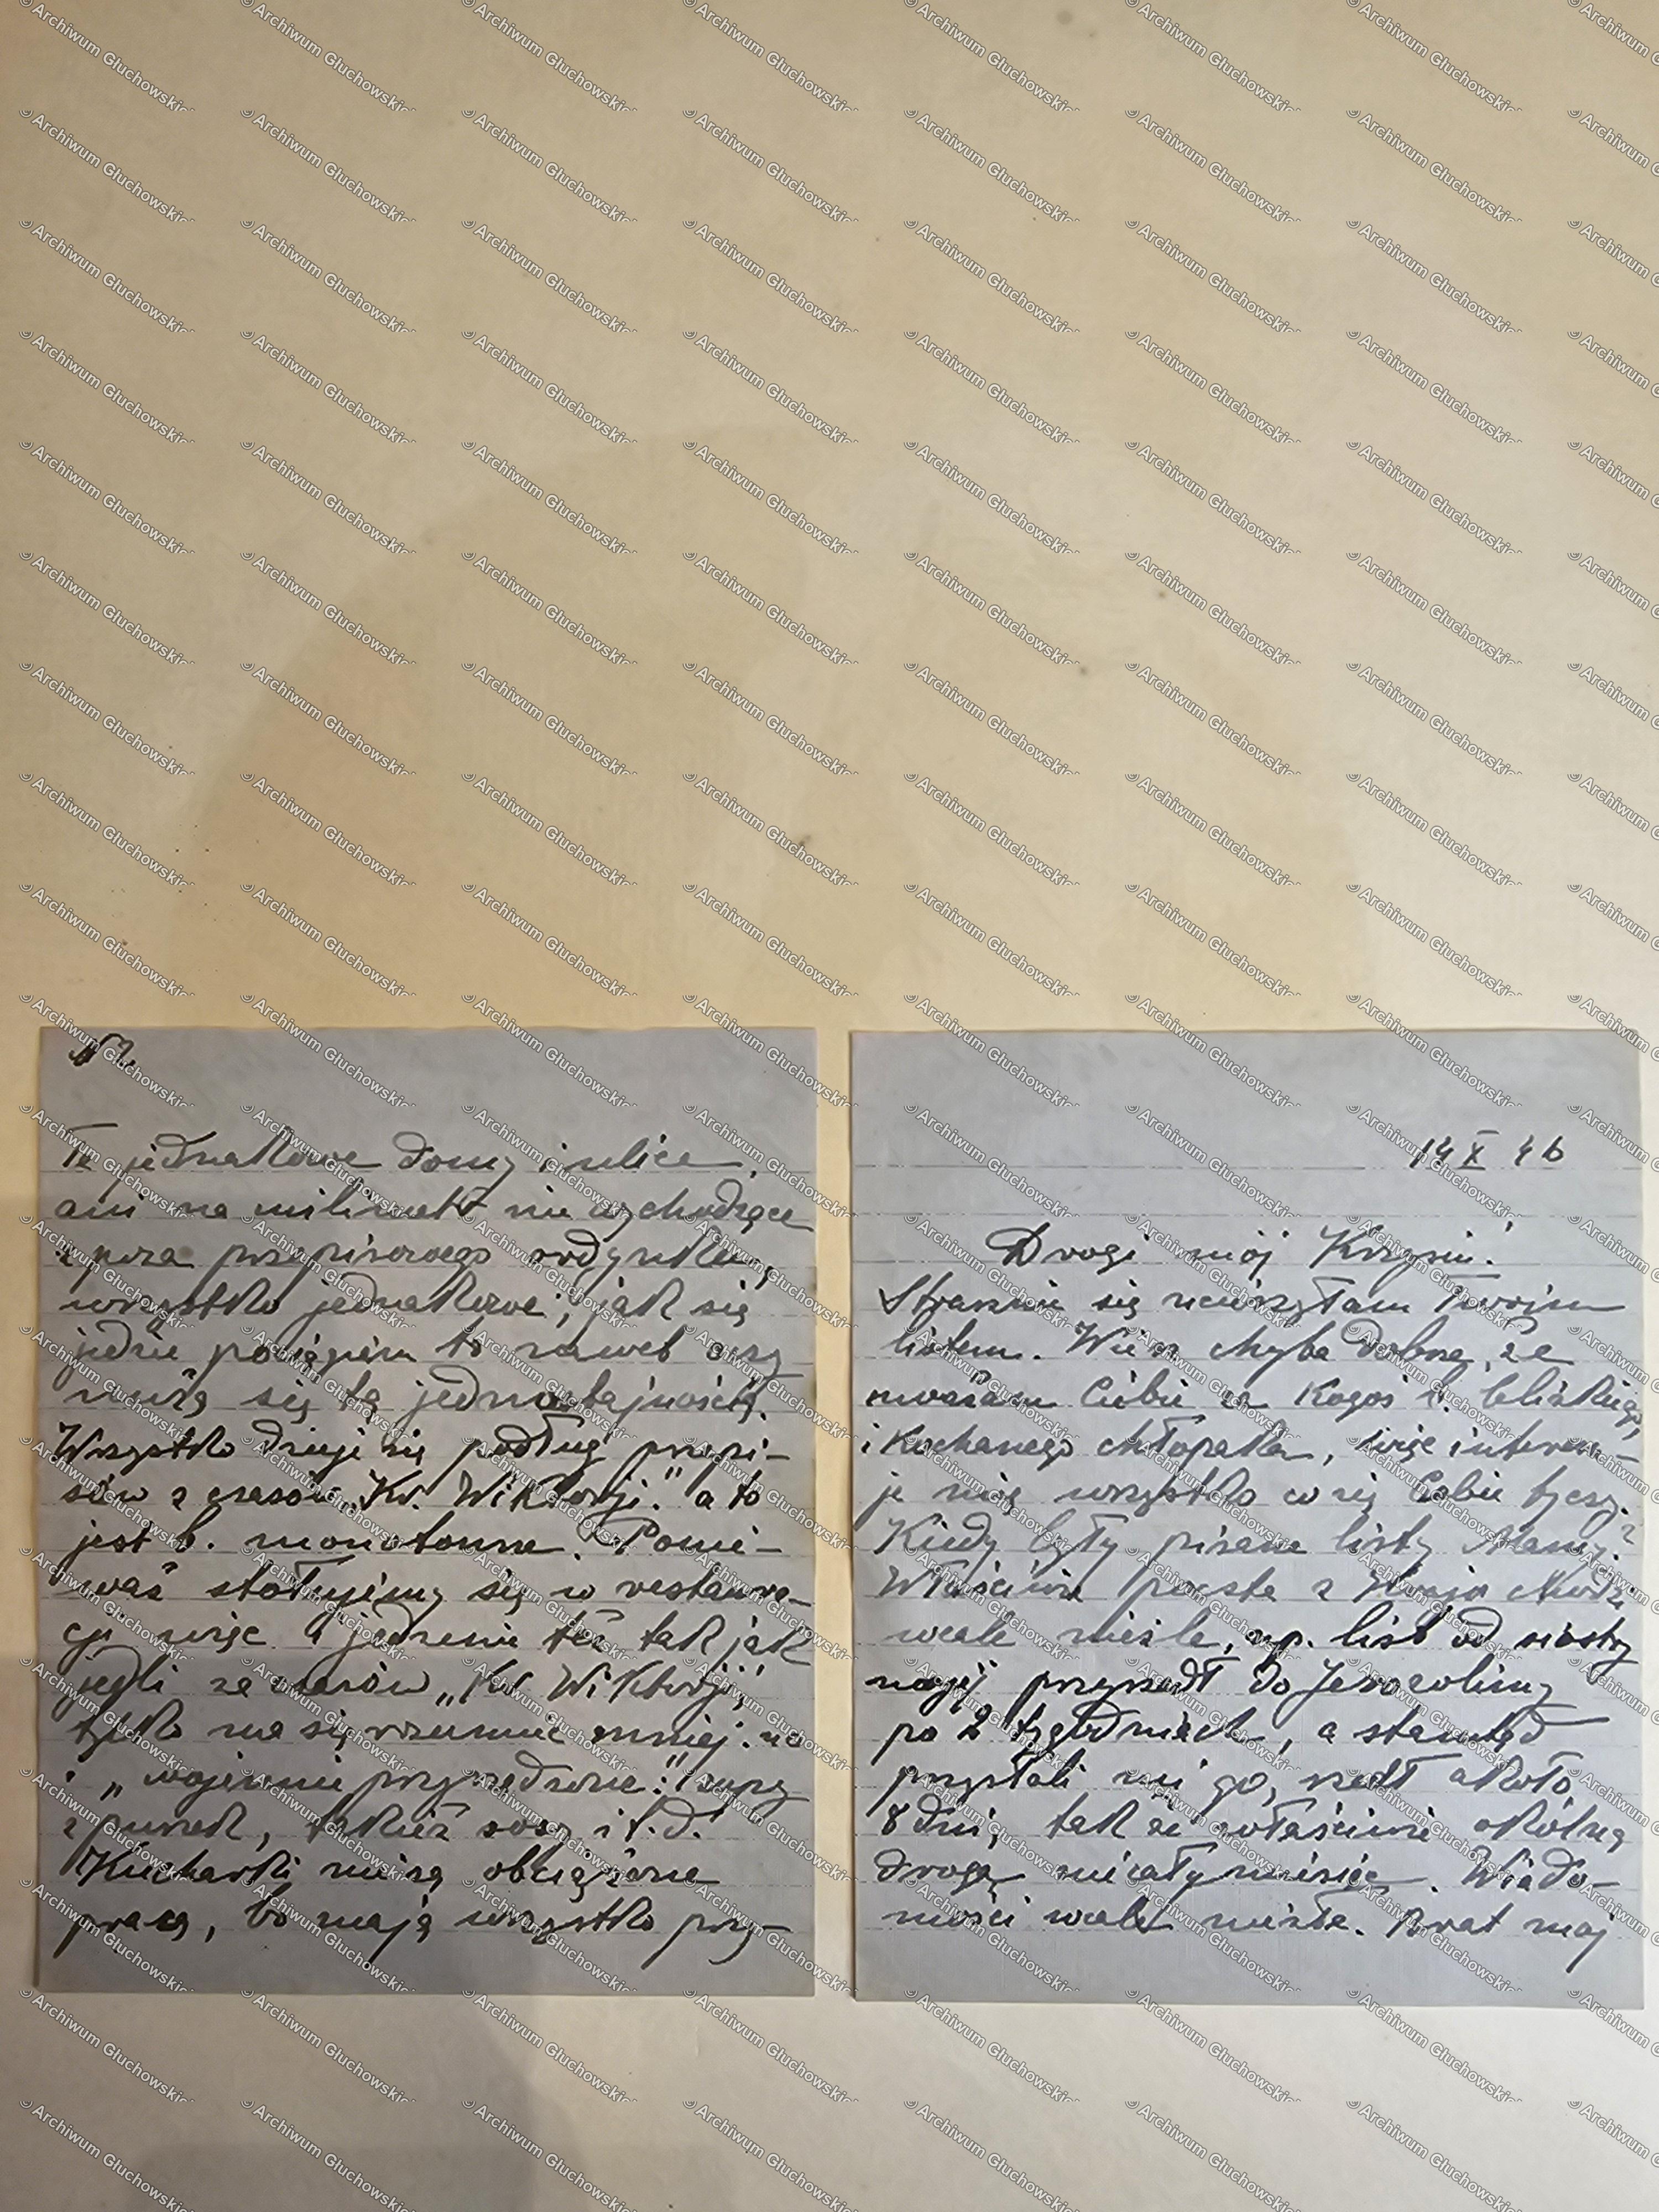 № 2.
Te jednakowe domy i ulice,
ani na milimetr nie wychodzące
z poza przepisowego rządku,
wszystko jednakowe, jak się
jedzie pociągiem to nawet oczy
nużą się tą jednostajnością.
Wszystko dzieje się podług przepi-
sów z czasów „Kr. Wiktorji" a to
jest b. monotonne. Ponie-
waż stołujemy się w restaura-
cji więc i jedzenie też tak jak
jedli za czasów „Kr. Wiktorji",
tylko ma się rozumieć mniej
i „wojennie przyrządzone:" zupy
z puszek, takież sosy i t.d.
Kucharki nie są obciążone
pracą, bo mają wszystko przy-
14 X 46
Drogi mój Krzysiu!
Strasznie się ucieszyłam Twoim
listem. Wiesz chyba dobrze, że
uważam Ciebie za kogoś b. bliskiego
i kochanego chłopaka, więc interesu-
je mię wszystko co się Ciebie tyczy.
Kiedy były pisane listy Mamy?
Właściwie poczta z Kraju chodzi
wcale nieźle, np. list od siostry
mojej przyszedł do Jerozolimy
po 2 tygodniach, a stamtąd
przysłali mi go, szedł około
8 dni, tak że właściwie okólną
drogą niecały miesiąc. Wiado-
mości wcale niezłe. Brat mój